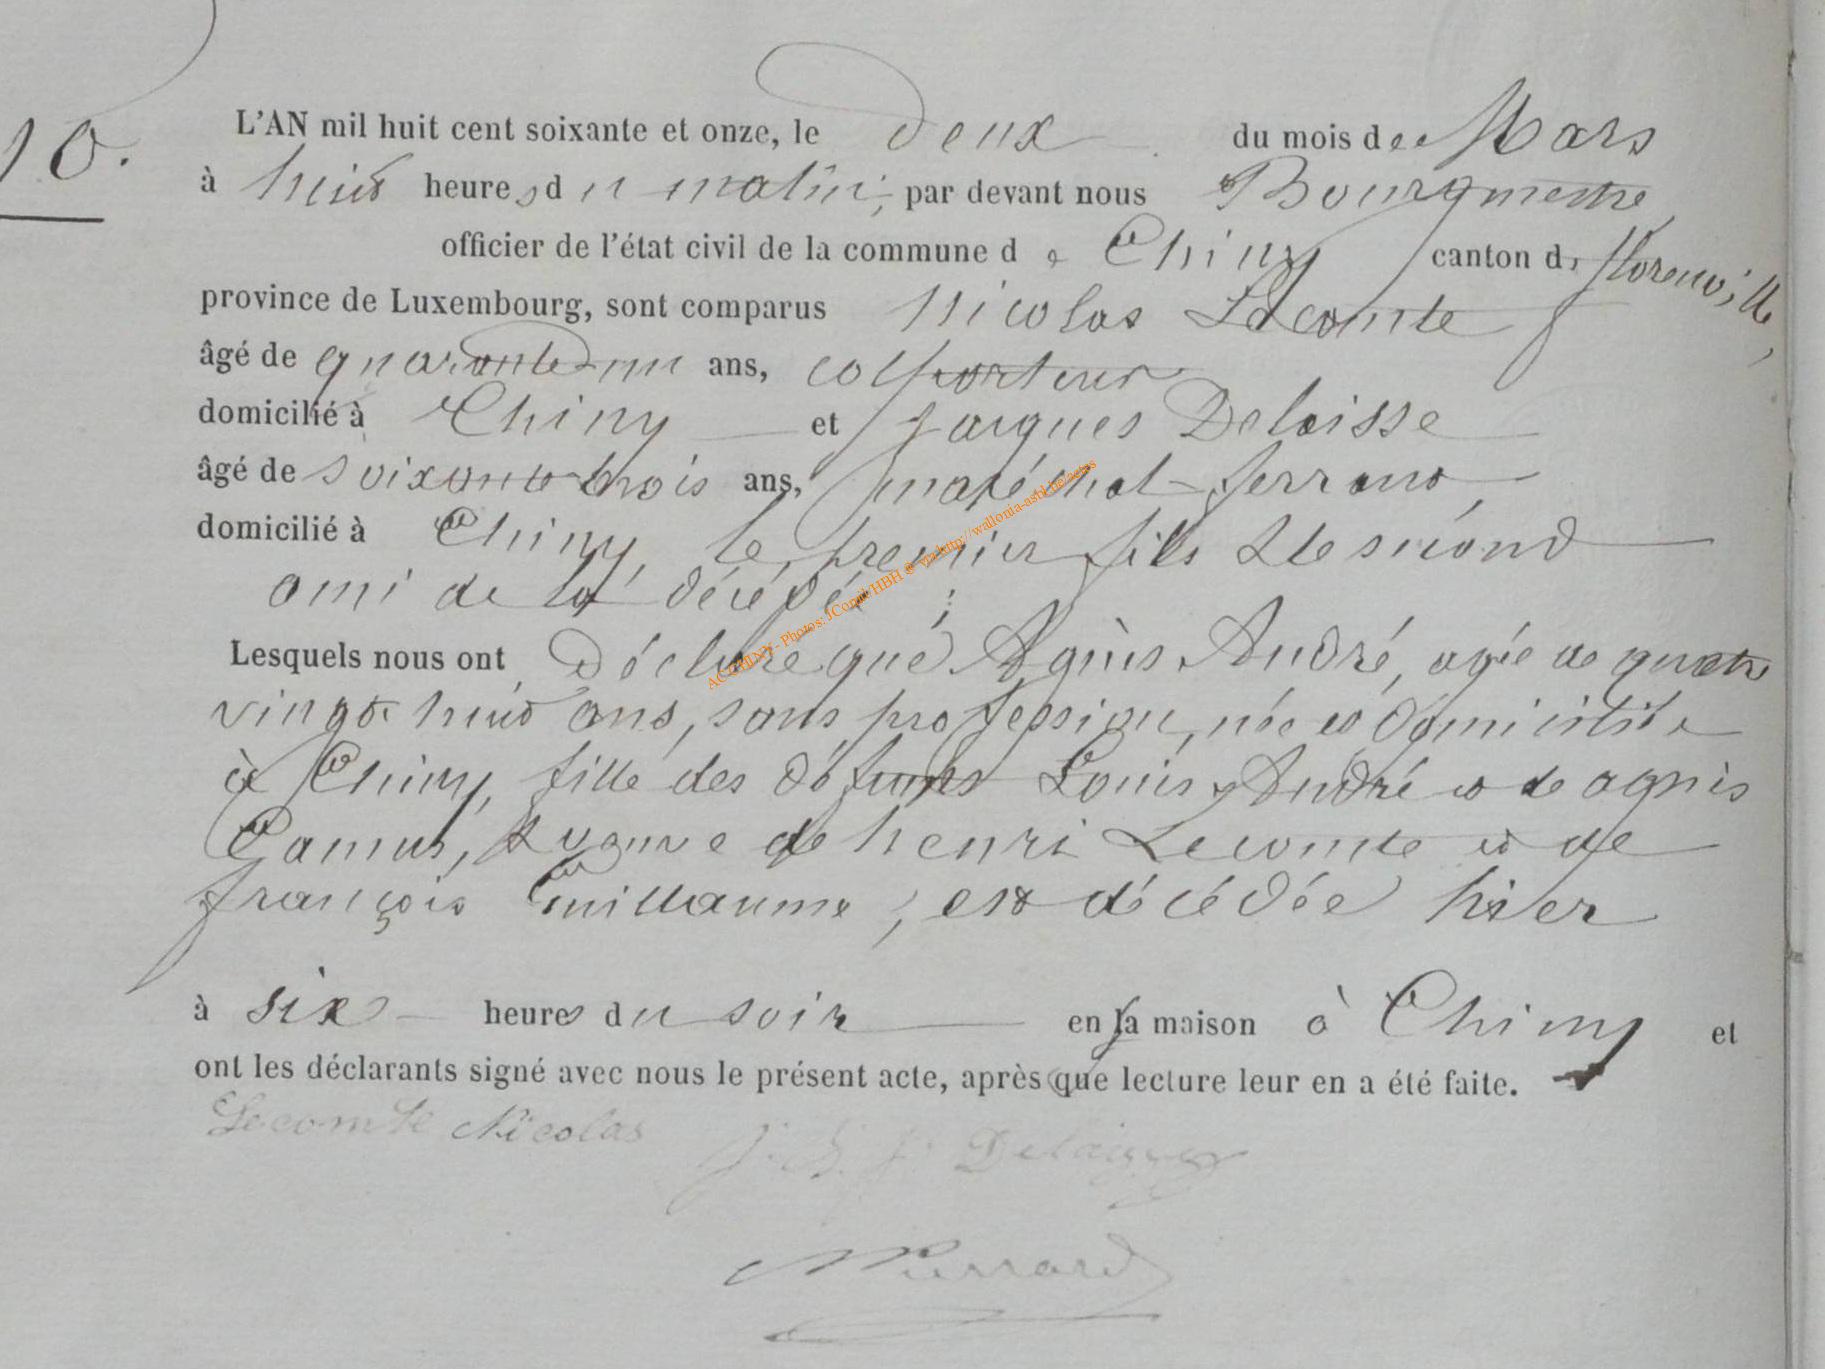 10.
L'AN mil huit cent soixante et onze, le deux du mois de Mars
à huit heures du matin, par devant nous Bourgmestre,
officier de l'état civil de la commune de Chiny canton de Florenville,
province de Luxembourg, sont comparus Nicolas Lecomte
âgé de quarante-un ans, colporteur
domicilié à Chiny et Jacques Delaisse
âgé de soixante-trois ans, maréchal-ferrant,
domicilié à Chiny, le premier fils & le second
ami de la décédée;
Lesquels nous ont déclaré que Agnès André, agée de quatre
vingt huit ans, sans profession, née et domiciliée
à Chiny, fille des défunts Louis André et de agnès
Camus, veuve de henri Lecomte et de
françois Guillaume, est décédée hier
à six heures du soir en sa maison à Chiny et
ont les déclarants signé avec nous le présent acte, après que lecture leur en a été faite.
Lecomte Nicolas
J. Delaisse
Pierrard
AC CHINY - Photos: JComil/HBH © via http://wallonia-asbl.be/actes